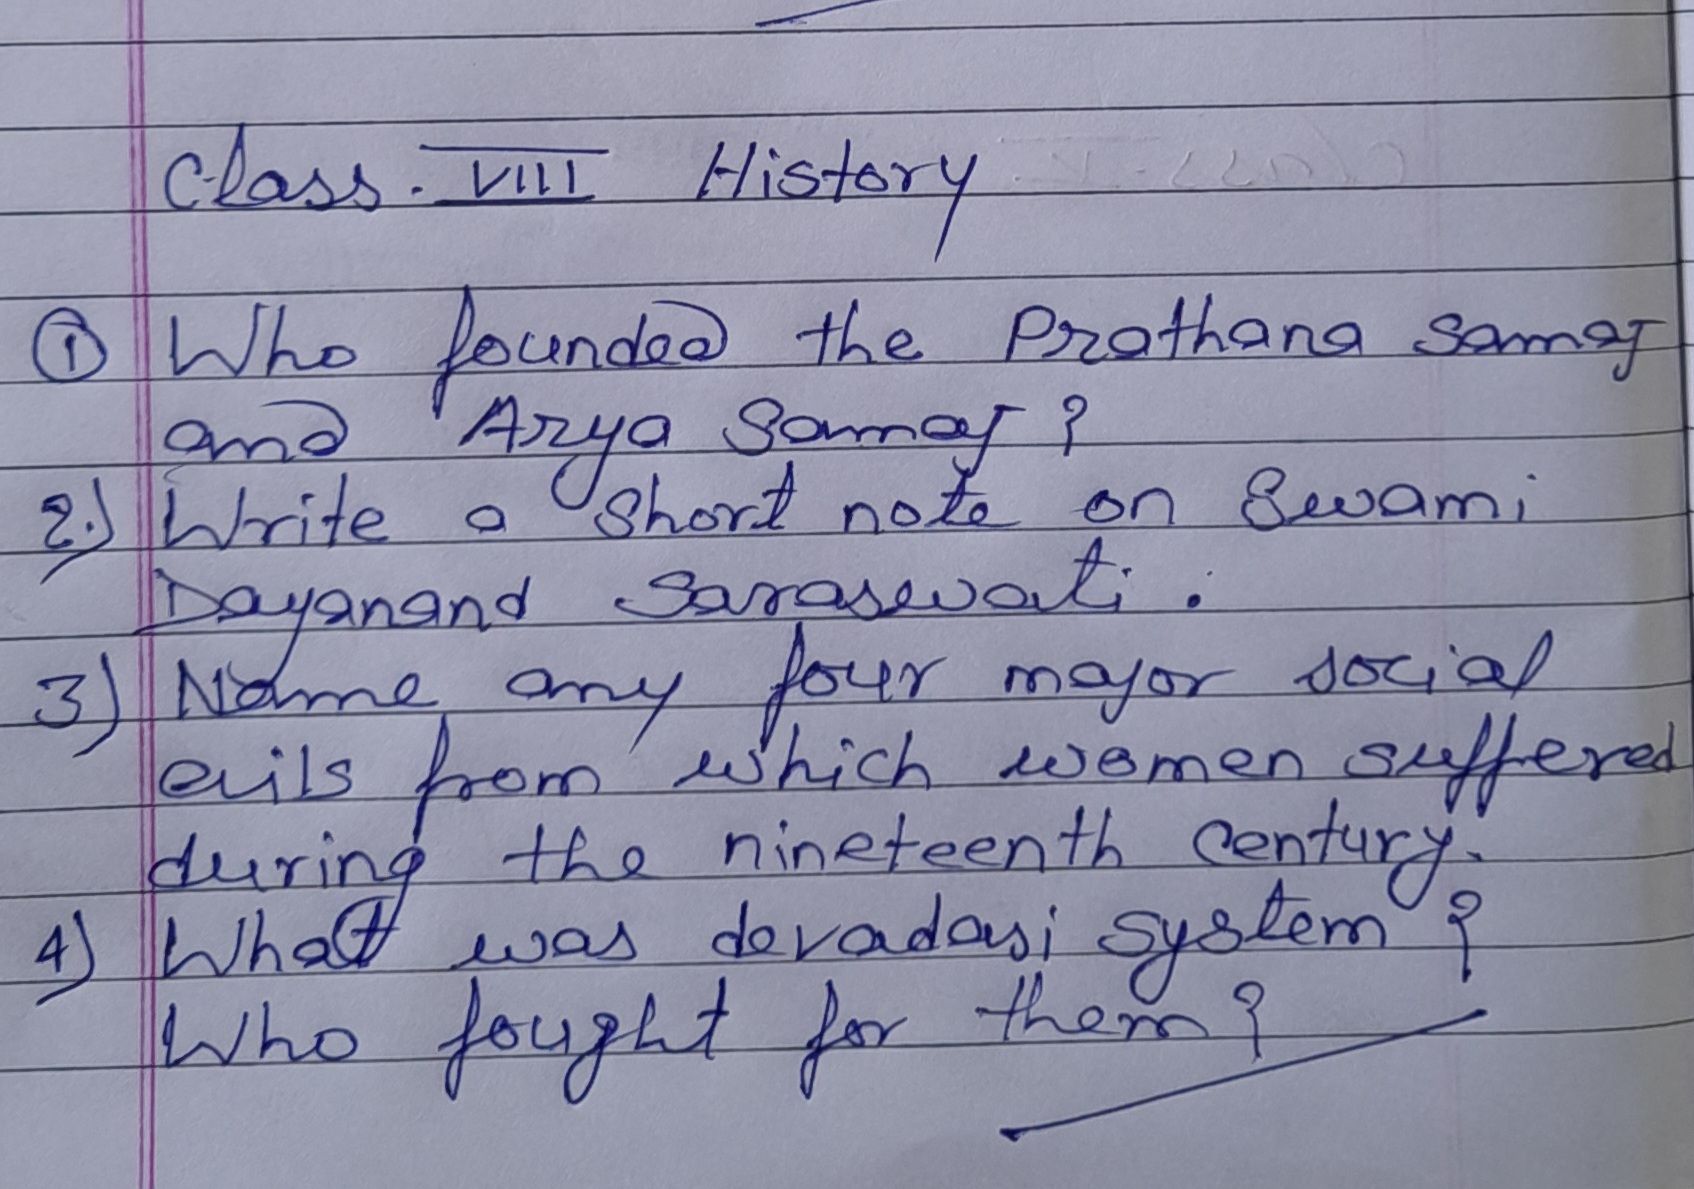 Class. VIII History
① Who founded the Prathana Samaj
and Arya Samaj?
2.) Write a short note on Swami
Dayanand Saraswati.
3) Name any four major social
evils from which women suffered
during the nineteenth century.
4) What was devadasi system?
Who fought for them?